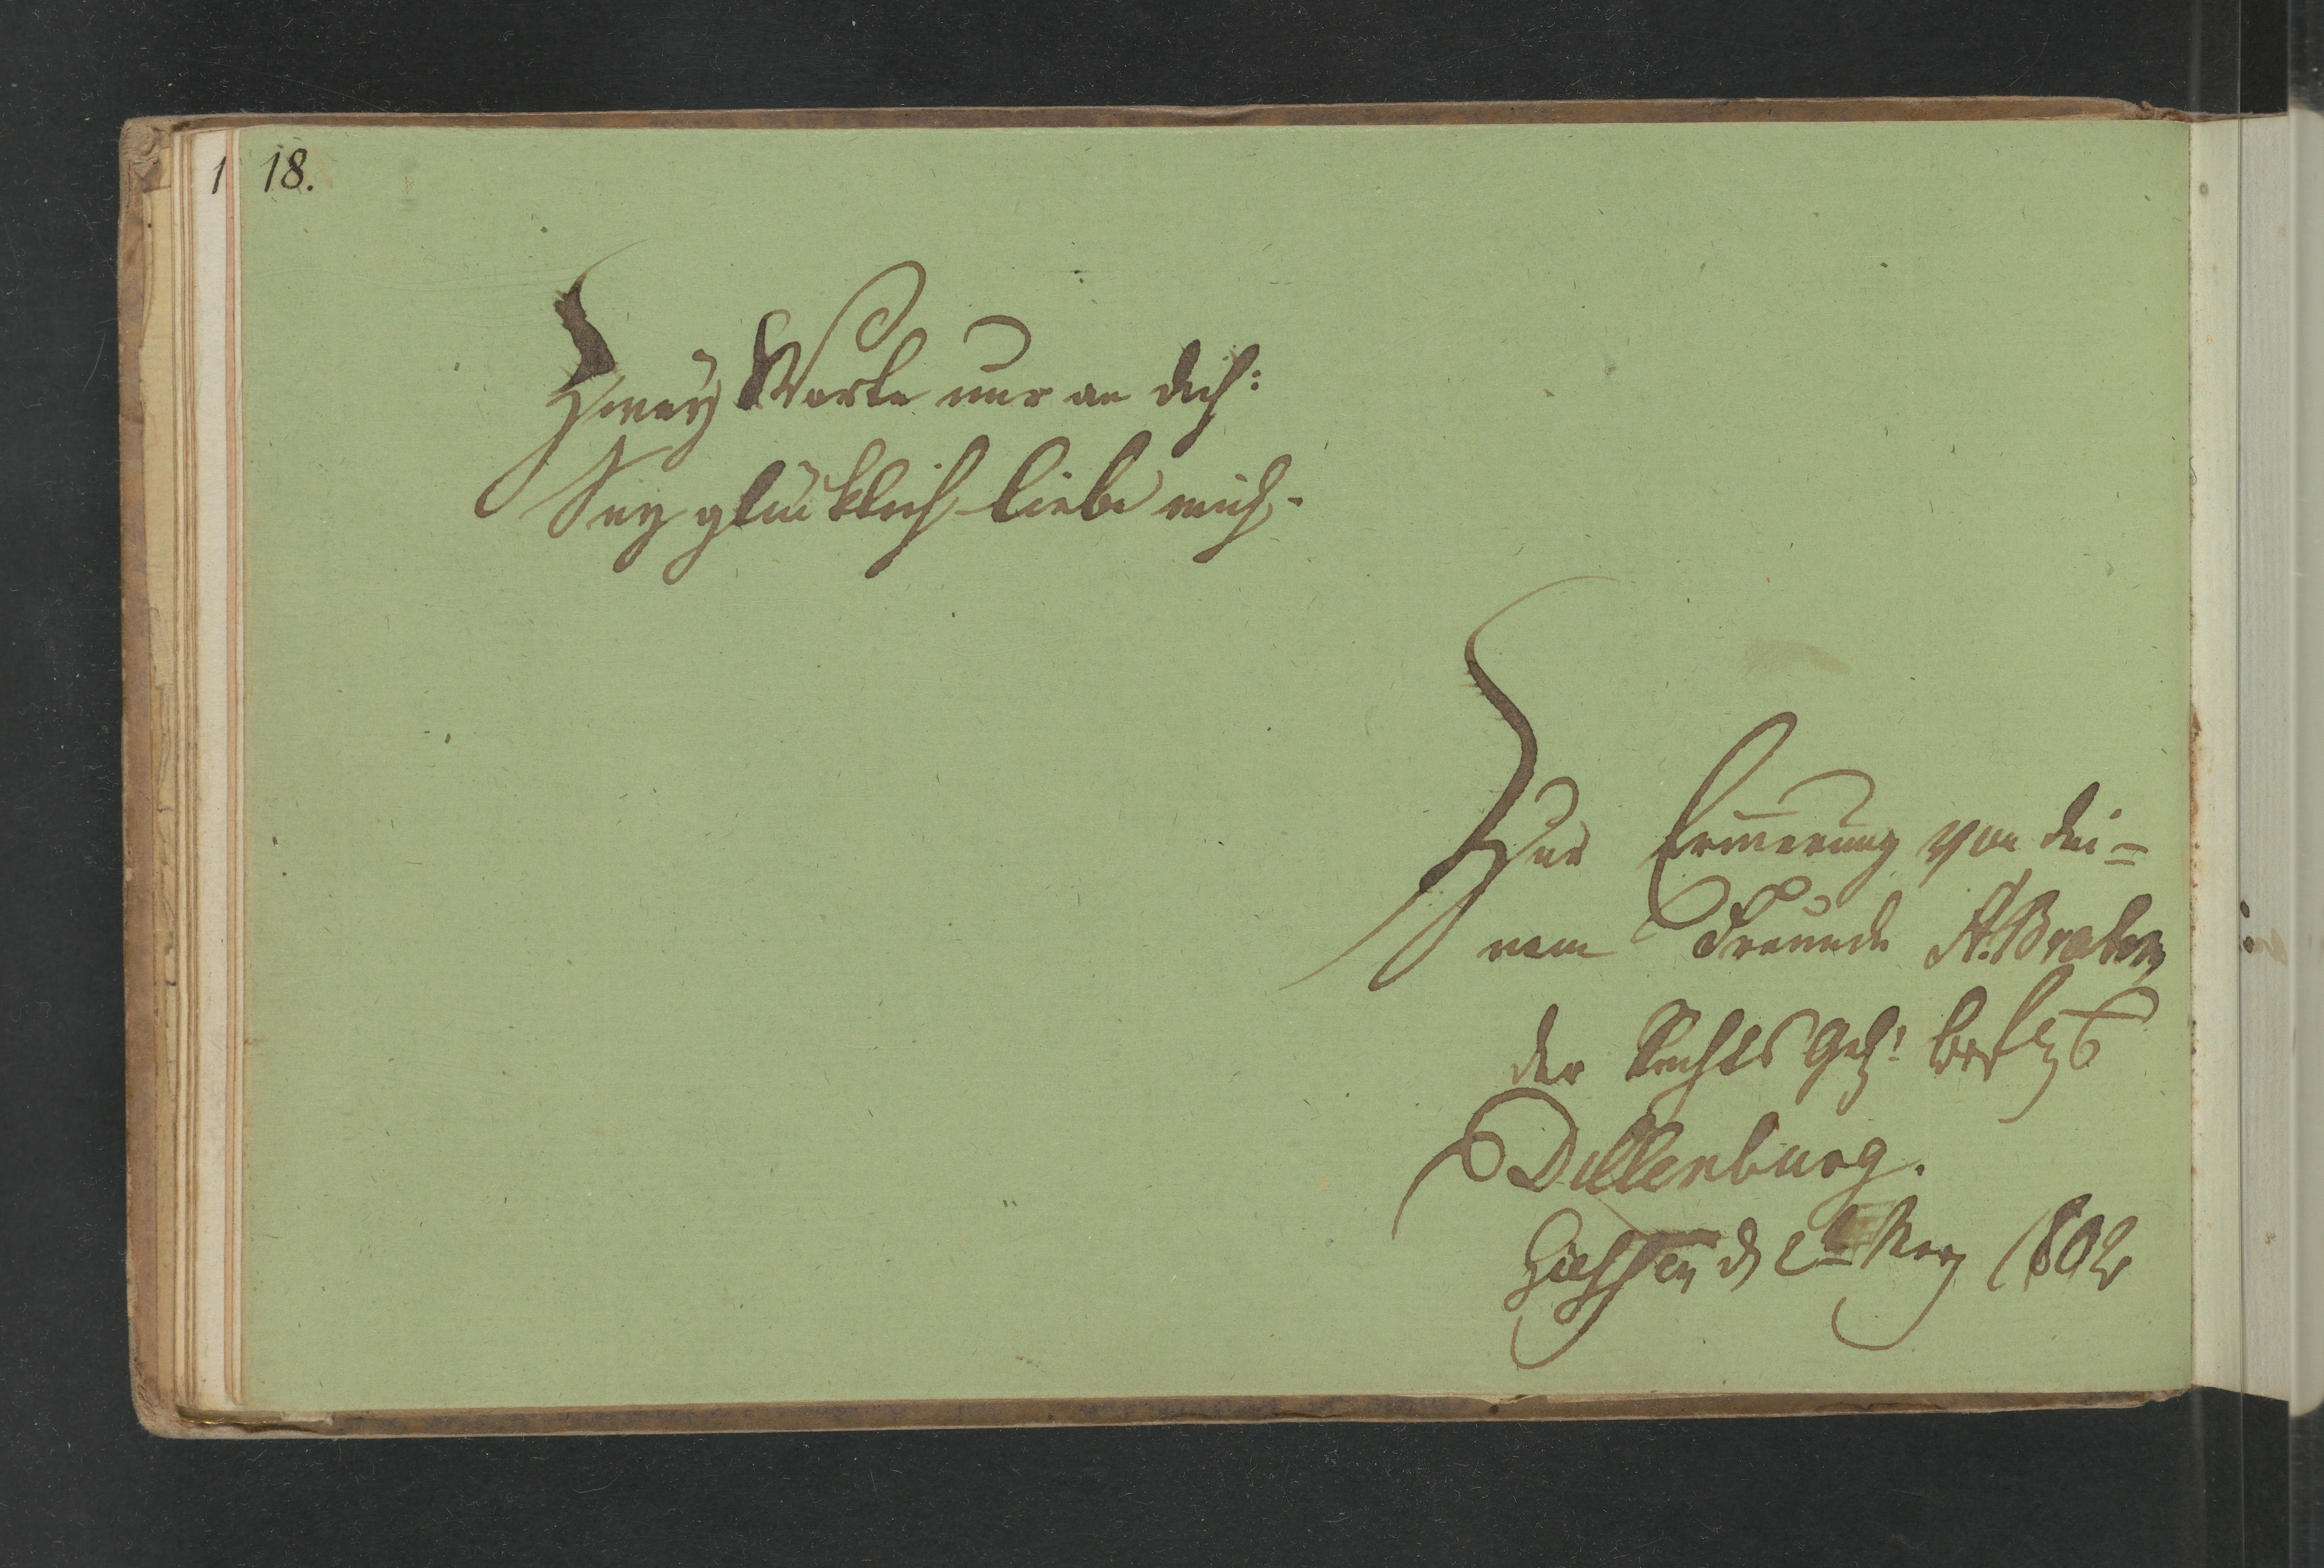 18.
Zwey Worte nur an dich:
Sey glücklich liebe mich.
Zur Erinnerung von dei=
nem Freunde A. Braben
der Rechte
Dillenburg.
Giessen d 2t Merz 1802